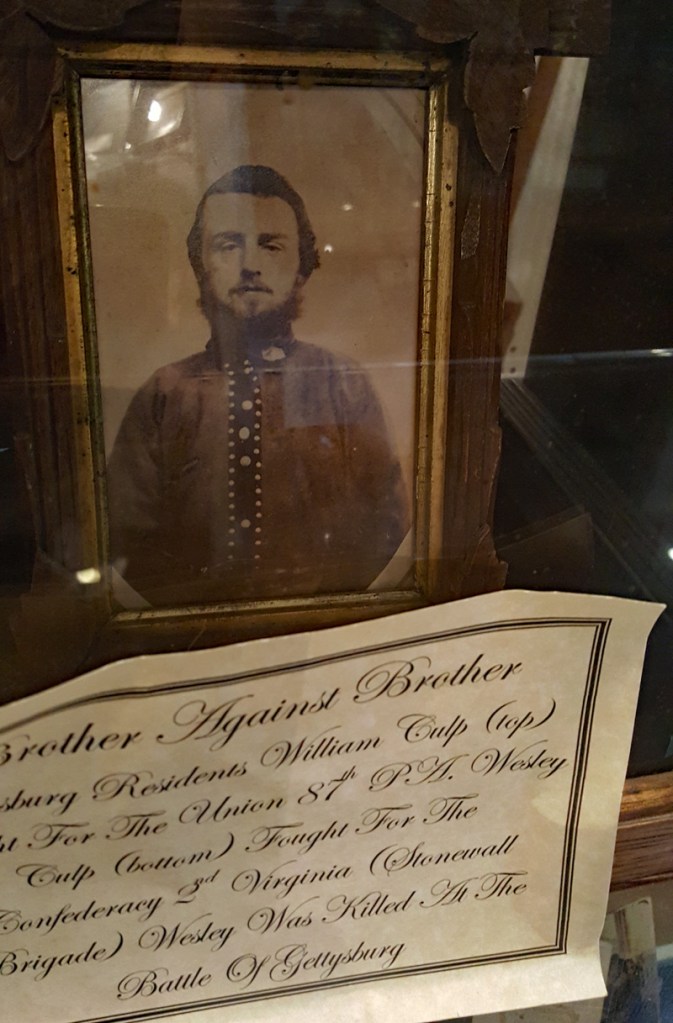 Brother Against Brother
sburg Residents William Culp (top)
ht For The Union 87th P.A. Wesley
Culp (bottom) Fought For The
Confederacy 2nd Virginia (Stonewall
Brigade) Wesley Was Killed At The
Battle Of Gettysburg